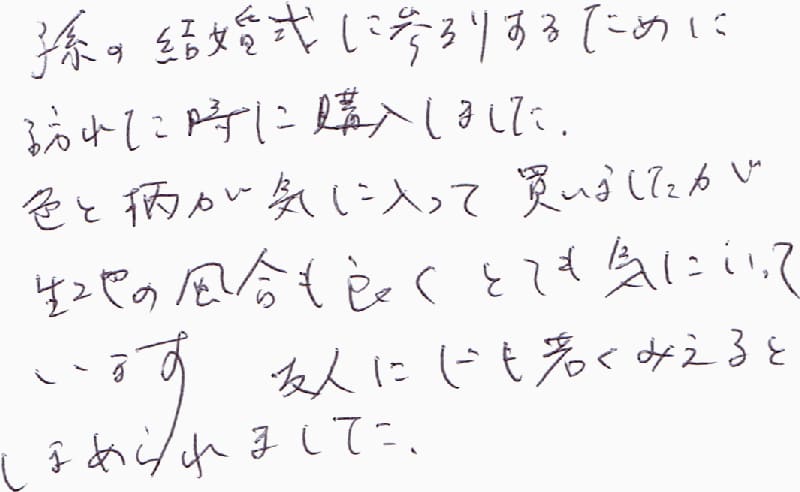 孫の結婚式に参列するために
訪れた時に購入しました.
色と柄が気に入って買いましたが
生地の風合も良くとても気にいって
います 友人にも若くみえると
ほめられました.